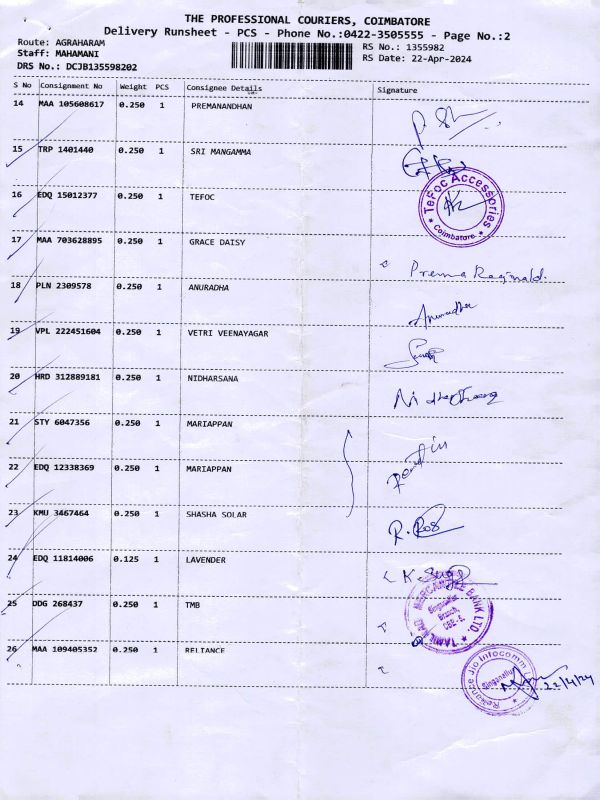 THE PROFESSIONAL COURIERS, COIMBATORE
Delivery Runsheet - PCS - Phone No.:0422-3505555 - Page No.:2
Route: AGRAHARAM
Staff: MAHAMANI
DRS No.: DCJB135598202
RS No.: 1355982
RS Date: 22-Apr-2024
S No Consignment No Weight PCS Consignee Details Signature
14 MAA 105608617 0.250 1 PREMANANDHAN
15 TRP 1401440 0.250 1 SRI MANGAMMA
16 EDQ 15012377 0.250 1 TEFOC
TeFoc Accessories
* Coimbatore *
17 MAA 703628895 0.250 1 GRACE DAISY
Prema Reginald.
18 PLN 2309578 0.250 1 ANURADHA
Anuradha
19 VPL 222451604 0.250 1 VETRI VEENAYAGAR
20 HRD 312889181 0.250 1 NIDHARSANA
21 STY 6047356 0.250 1 MARIAPPAN
22 EDQ 12338369 0.250 1 MARIAPPAN
23 KMU 3467464 0.250 1 SHASHA SOLAR
24 EDQ 11814006 0.125 1 LAVENDER
25 DDG 268437 0.250 1 TMB
TAMILNAD MERCANTILE BANK LTD.
Singanallur
Branch,
26 MAA 109405352 0.250 1 RELIANCE
Reliance Jio Infocomm
Singanallur
22/4/24